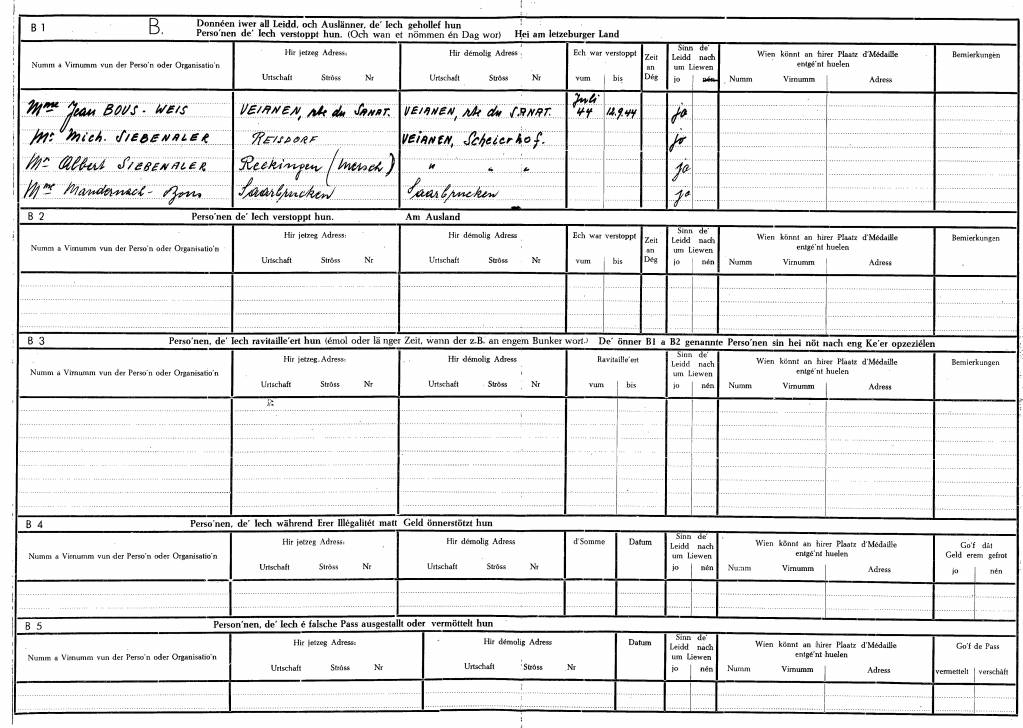 B 1 B. Donnéen iwer all Leidd, och Auslänner, de' Iech gehollef hun
Perso'nen de' Iech verstoppt hun. (Och wan et nömmen én Dag wor) Hei am letzeburger Land
Numm a Virnumm vun der Perso'n oder Organisatio'n Hir jetzeg Adress: Hir démolig Adress Ech war verstoppt Zeit an Dég Sinn de' Leidd nach um Liewen Wien könnt an hirer Plaatz d'Médaille entgé'nt huelen Bemierkungen
Urtschaft Ströss Nr Urtschaft Ströss Nr vum bis jo nén Numm Virnumm Adress
Mme Jean BOVS - WEIS VEIANEN, rte du SANAT. VEIANEN, rte du SANAT. Juli 44 12.9.44 jo
Mr Mich. SIEBENALER REISDORF VEIANEN, Scheierhof. jo
Mr Albert SIEBENALER Reckingen (Mersch) " " " jo
Mme Mandernach - Saarbrucken Saarbrucken jo
B 2 Perso'nen de' Iech verstoppt hun. Am Ausland
Numm a Virnumm vun der Perso'n oder Organisatio'n Hir jetzeg Adress: Hir démolig Adress Ech war verstoppt Zeit an Dég Sinn de' Leidd nach um Liewen Wien könnt an hirer Plaatz d'Médaille entgé'nt huelen Bemierkungen
Urtschaft Ströss Nr Urtschaft Ströss Nr vum bis jo nén Numm Virnumm Adress
B 3 Perso'nen, de' Iech ravitaille'ert hun (émol oder länger Zeit, wann der z.B. an engem Bunker wort.) De' önner B1 a B2 genannte Perso'nen sin hei nöt nach eng Ke'er opzeziélen
Numm a Virnumm vun der Perso'n oder Organisatio'n Hir jetzeg. Adress: Hir démolig Adress Ravitaille'ert Sinn de' Leidd nach um Liewen Wien könnt an hirer Plaatz d'Médaille entgé'nt huelen Bemierkungen
Urtschaft Ströss Nr Urtschaft Ströss Nr vum bis jo nén Numm Virnumm Adress
B 4 Perso'nen, de' Iech während Erer Illégalitét matt Geld önnerstötzt hun
Numm a Virnumm vun der Perso'n oder Organisatio'n Hir jetzeg Adress: Hir démolig Adress d'Somme Datum Sinn de' Leidd nach um Liewen Wien könnt an hirer Plaatz d'Médaille entgé'nt huelen Go'f dât Geld erem gefrot
Urtschaft Ströss Nr Urtschaft Ströss Nr jo nén Numm Virnumm Adress jo nén
B 5 Person'nen, de' Iech é falsche Pass ausgestallt oder vermöttelt hun
Numm a Virnumm vun der Perso'n oder Organisatio'n Hir jetzeg Adress: Hir démolig Adress Datum Sinn de' Leidd nach um Liewen Wien könnt an hirer Plaatz d'Médaille entgé'nt huelen Go'f de Pass
Urtschaft Ströss Nr Urtschaft Ströss Nr jo nén Numm Virnumm Adress vermettelt verschäft